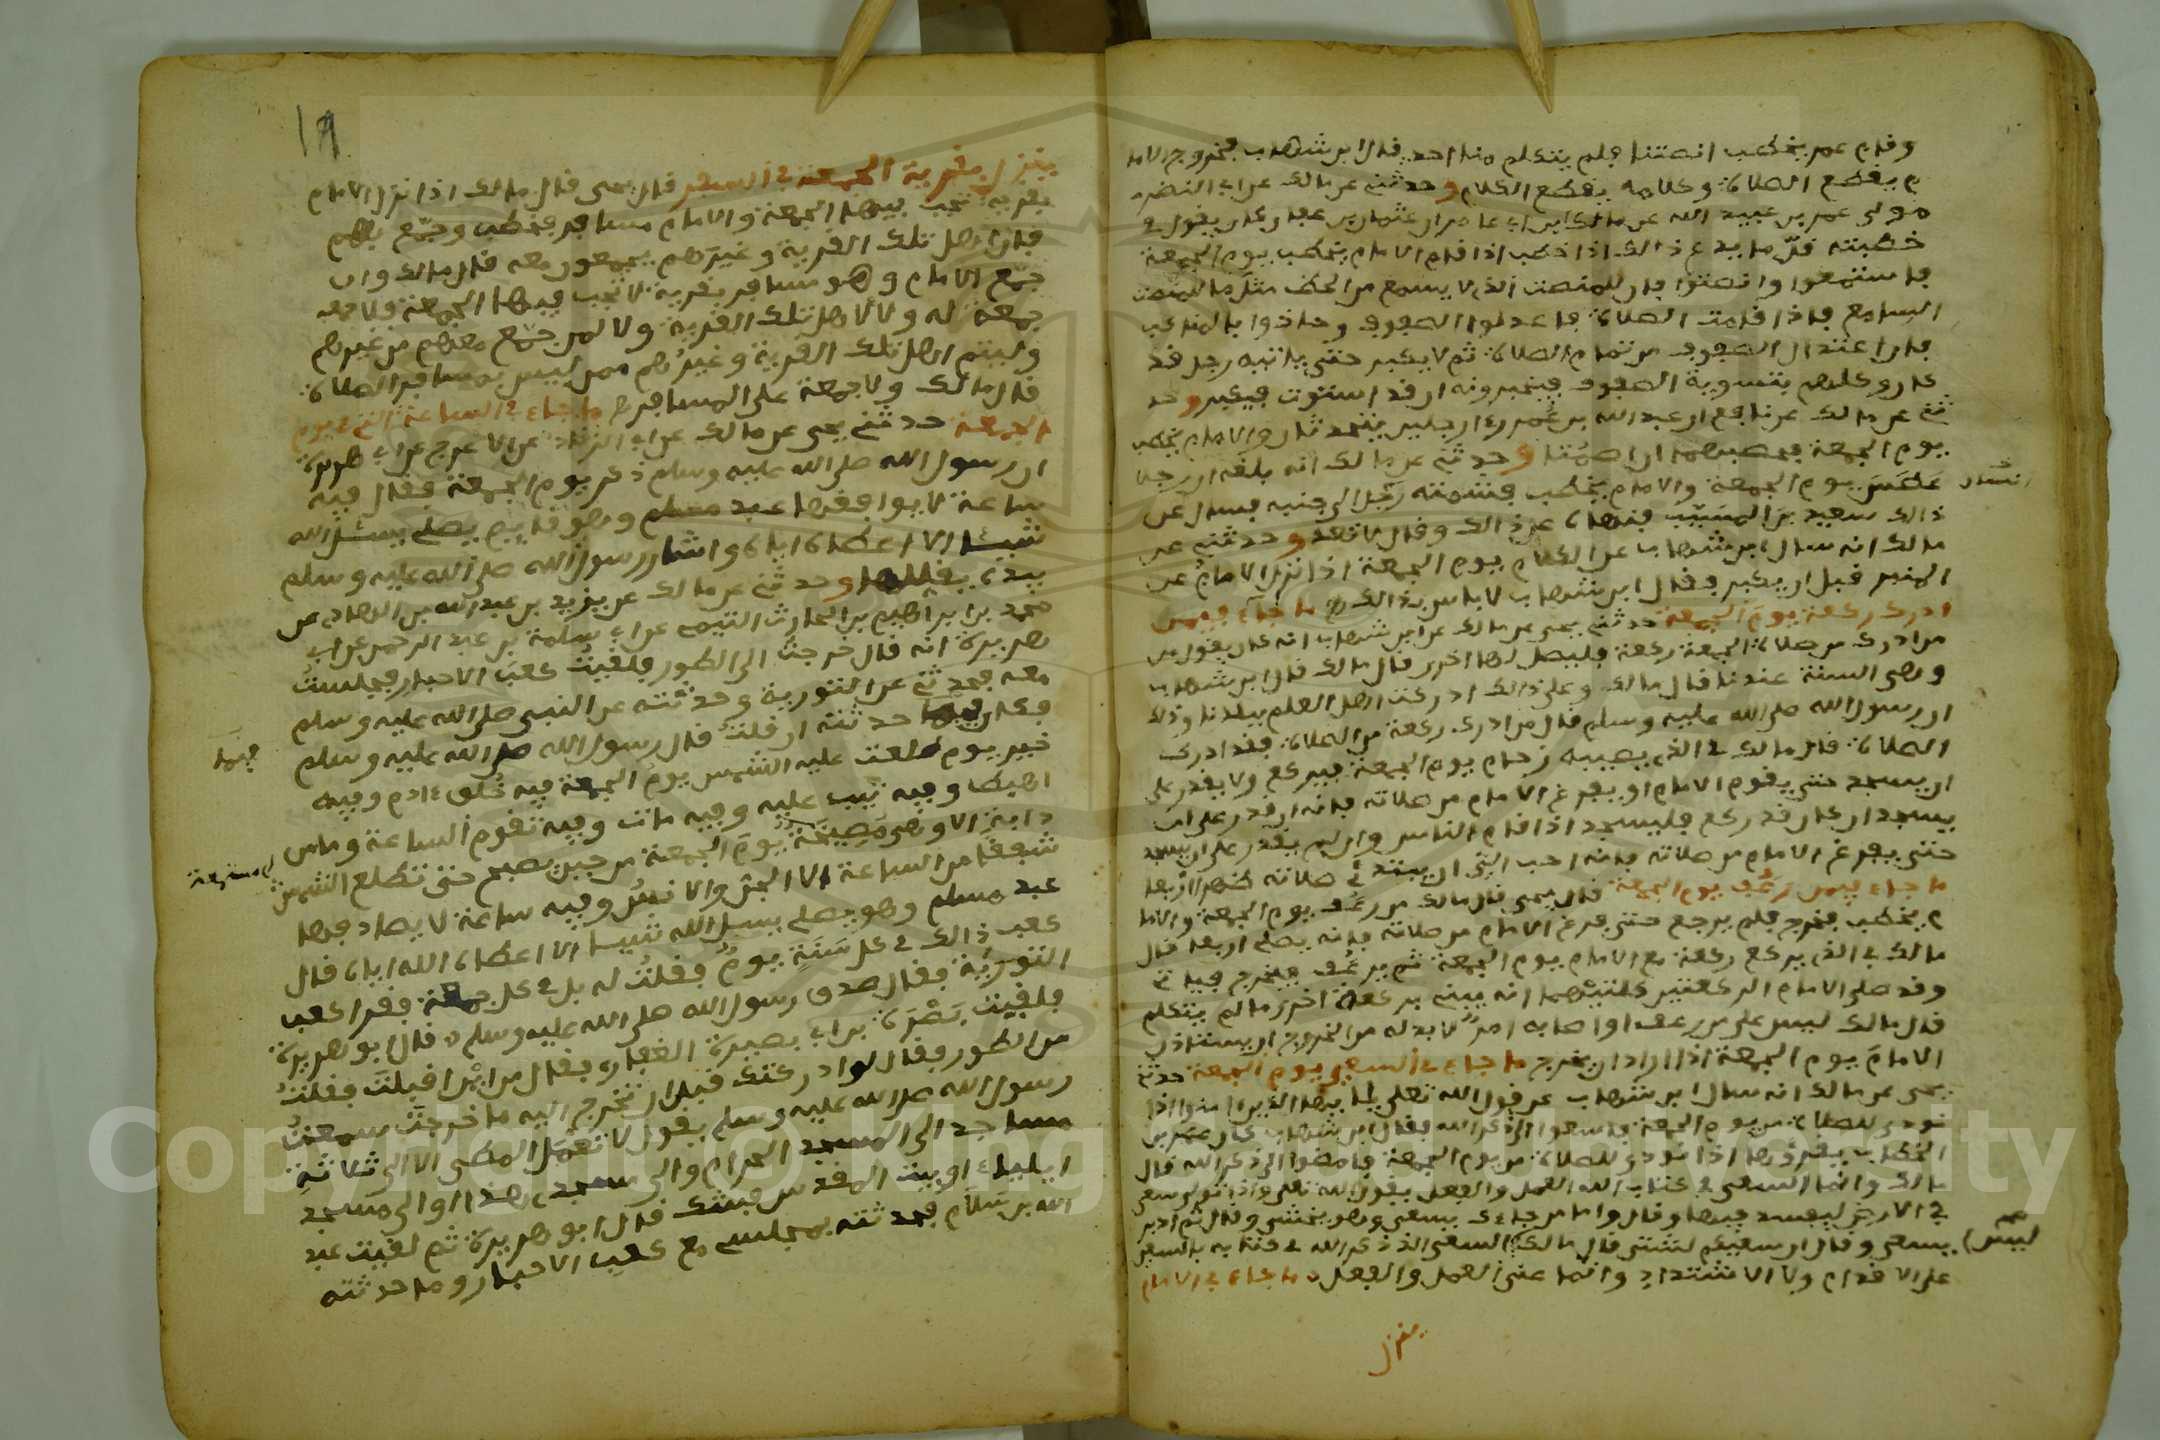 وقام عمر يخطب انصتنا فلم يتكلم منا احد قال ابن شهاب فخروج الاما
م يقطع الصلاة وكلامه يقطع الكلام وحدثني عن مالك عن ابي النضر
مولى عمر بن عبيد الله عن مالك بن ابي عامر ان عثمان بن عفان كان يقول في
خطبته قل ما يدع ذالك اذا خطب اذا قام الامام يخطب يوم الجمعة
فاستمعوا وانصتوا فان للمنصت الذي لا يسمع من الحظ مثل ما للمنصت
السامع فاذا قامت الصلاة فاعدلوا الصفوف وحاذوا بالمناكب
فان اعتدال الصفوف من تمام الصلاة ثم لا يكبر حتى ياتيه رجل قد
كان وكلهم بتسوية الصفوف فيخبرونه ان قد استوت فيكبر وحد
ثني عن مالك عن نافع ان عبد الله بن عمر رءا رجلين يتحدثان والامام يخطب
يوم الجمعة فحصبهما ان اصمتا وحدثني عن مالك انه بلغه ان رجلا
عطس يوم الجمعة والامام يخطب فشمته رجل الى جنبه فسال عن
ذالك سعيد بن المسيب فنهاه عن ذالك وقال لا تعد وحدثني عن
مالك انه سال ابن شهاب عن الكلام يوم الجمعة اذا نزل الامام عن
المنبر قبل ان يكبر فقال ابن شهاب لا باس بذالك ما جاء فيمن
ادرك ركعة يوم الجمعة حدثني يحيى عن مالك عن ابن شهاب انه كان يقول من
من ادرك من صلاة الجمعة ركعة فليصل اليها اخرى قال مالك قال ابن شهاب
وهي السنة عندنا قال مالك وعلى ذالك ادركت اهل العلم ببلدنا وذلك
ان رسول الله صلى الله عليه وسلم قال من ادرك ركعة من الصلاة فقد ادرك
الصلاة قال مالك في الذي يصيبه زحام يوم الجمعة فيركع ولا يقدر على
ان يسجد حتى يقوم الامام او يفرغ الامام من صلاته فانه ان قدر على ان
يسجد ان كان قد ركع فليسجد اذا قام الناس وان لم يقدر على ان يسجد
حتى يفرغ الامام من صلاته فانه احب الي ان يبتدئ صلاته ظهرا اربعا
ما جاء فيمن رعف يوم الجمعة قال يحيى قال مالك من رعف يوم الجمعة والاما
م يخطب فخرج فلم يرجع حتى فرغ الامام من صلاته فانه يصلي اربعا قال
مالك في الذي يركع ركعة مع الامام يوم الجمعة ثم يرعف فيخرج فياتي
وقد صلى الامام الركعتين كلتيهما انه يبني بركعة اخرى ما لم يتكلم
قال مالك ليس على من رعف او اصابه امر لا بد له من الخروج ان يستاذن
الامام يوم الجمعة اذا اراد ان يخرج ما جاء في السعي يوم الجمعة حدثني
يحيى عن مالك انه سال ابن شهاب عن قول الله تعلى يا ايها الذين ءامنوا اذا
نودي للصلاة من يوم الجمعة فاسعوا الى ذكر الله فقال ابن شهاب كان عمر بن
الخطاب يقرؤها اذا نودي للصلاة من يوم الجمعة فامضوا الى ذكر الله قال
مالك وانما السعي في كتاب الله العمل والفعل يقول الله تعلى واذا تولى سعى
في الارض ليفسد فيها وقال واما من جاءك يسعى وهو يخشى وقال ثم ادبر
يسعى وقال ان سعيكم لشتى قال مالك السعي الذي ذكر الله في كتابه بالسعي
على الاقدام ولا الاشتداد وانما عنى العمل والفعل ما جاء في الامام
ليس
ينزل
ينزل بقرية الجمعة في السفر قال يحيى قال مالك اذا نزل الامام
بقرية تجب فيها الجمعة والامام مسافر فخطب وجمع بهم
فان اهل تلك القرية وغيرهم يجمعون معه قال مالك وان
جمع الامام وهو مسافر بقرية لا تجب فيها الجمعة فلا جمعة
جمعة له ولا لاهل تلك القرية ولا لمن جمع معهم من غيرهم
وليتم اهل تلك القرية وغيرهم ممن ليس بمسافر الصلاة
قال مالك ولا جمعة على المسافر ما جاء في الساعة التي في يوم
الجمعة حدثني يحيى عن مالك عن ابي الزناد عن الاعرج عن ابي هريرة
ان رسول الله صلى الله عليه وسلم ذكر يوم الجمعة فقال فيه
ساعة لا يوافقها عبد مسلم وهو قايم يصلي يسئل الله
شيئا الا اعطاه اياه واشار رسول الله صلى الله عليه وسلم
بيده يقللها وحدثني عن مالك عن يزيد بن عبد الله بن الهادي عن
محمد بن ابراهيم بن الحارث التيمي عن ابي سلمة بن عبد الرحمن عن ابي
هريرة انه قال خرجت الى الطور فلقيت كعب الاحبار فجلست
معه فحدثني عن التورية وحدثته عن النبي صلى الله عليه وسلم
فكان فيما حدثته ان قلت قال رسول الله صلى الله عليه وسلم
خير يوم طلعت عليه الشمس يوم الجمعة فيه خلق ءادم وفيه
اهبط وفيه تيب عليه وفيه مات وفيه تقوم الساعة وما من
دابة الا وهي مصيخة يوم الجمعة من حين تصبح حتى تطلع الشمس
شفقا من الساعة الا الجن والانس وفيه ساعة لا يصادفها
عبد مسلم وهو يصلي يسئل الله شيئا الا اعطاه الله اياه قال
كعب ذالك في كل سنة يوم فقلت له بل في كل جمعة فقرا كعب
التورية فقال صدق رسول الله صلى الله عليه وسلم قال ابو هريرة
فلقيت بصرة بن ابي بصرة الغفاري فقال من اين اقبلت فقلت
من الطور فقال لو ادركتك قبل ان تخرج اليه ما خرجت سمعت
رسول الله صلى الله عليه وسلم يقول لا تعمل المطي الا الى ثلاثة
مساجد الى المسجد الحرام والى مسجدي هذا والى مسجد
ايلياء او بيت المقدس يشك قال ابو هريرة ثم لقيت عبد
الله بن سلام فحدثته بمجلسي مع كعب الاحبار وما حدثته
فيما
Copyright © King Saud University